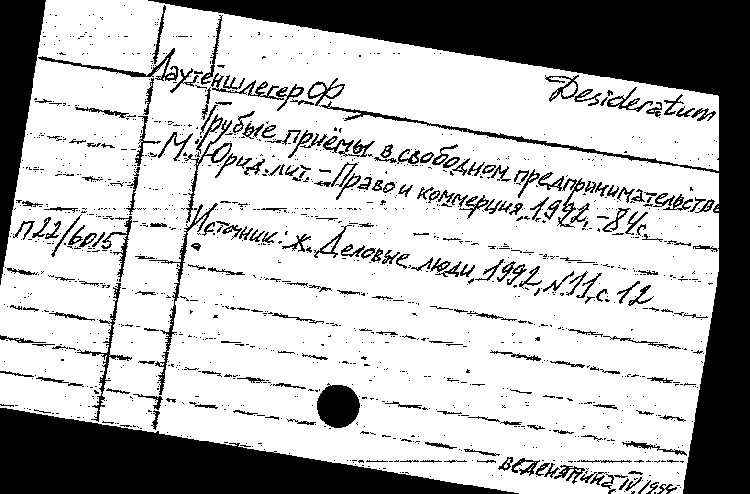 Desideratum
Лаутеншлегер Ф.
Грубые приёмы в свободном предпринимательстве
- М.: Юрид. лит. - Право и коммерция, 1992, - 84с.
п22/6015
Источник: ж. Деловые люди, 1992, N11, с. 12
IV. 1994